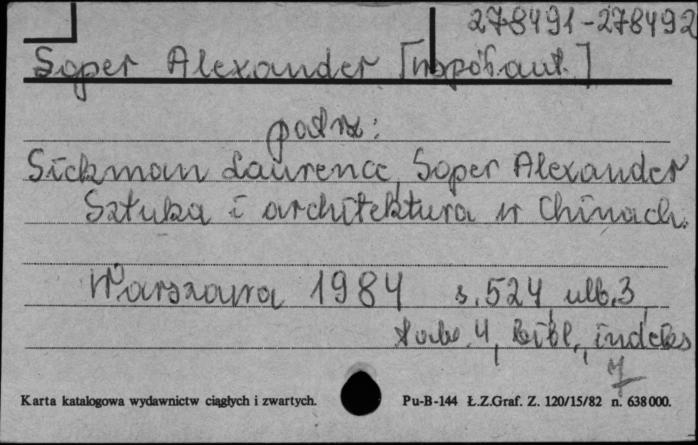 278491-278492
Soper Alexander [współaut.]
patrz:
Sickman Laurence, Soper Alexander
Sztuka i architektura w Chinach.
Warszawa 1984 s. 524, ulb. 3,
tabl. 4, bibl., indeks
7
Karta katalogowa wydawnictw ciągłych i zwartych. Pu-B-144 Ł.Z.Graf. Z. 120/15/82 n. 638 000.